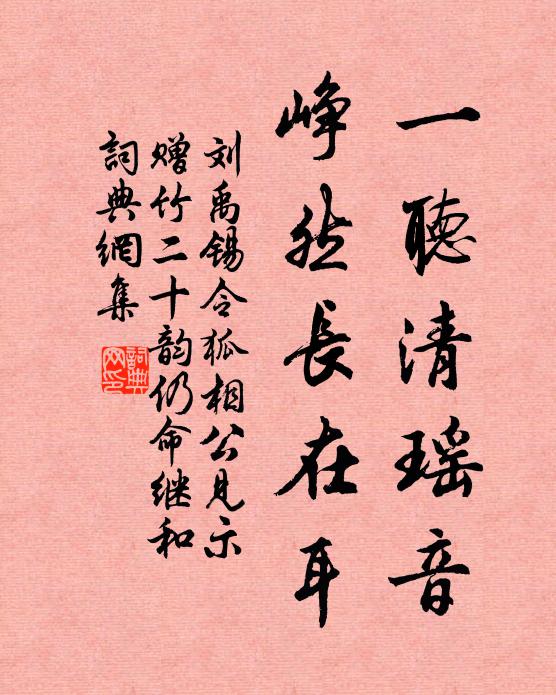 一聽清瑶音
峥然長在耳
刘禹锡令狐相公見示
赠竹二十韵仍命继和
詞典網集
詞典網印